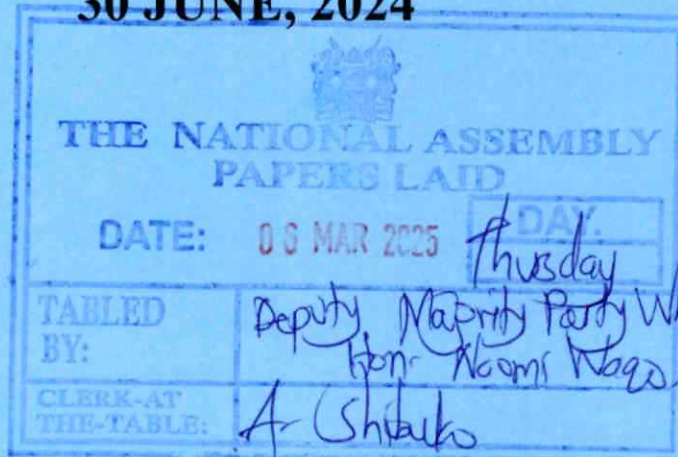 30 JUNE, 2024
THE NATIONAL ASSEMBLY
PAPERS LAID
DATE: 06 MAR 2025 DAY.
Thusday
TABLED BY: Deputy Majority Party W
Hon. Naomi Waqo
CLERK-AT THE-TABLE: A. Shibuko